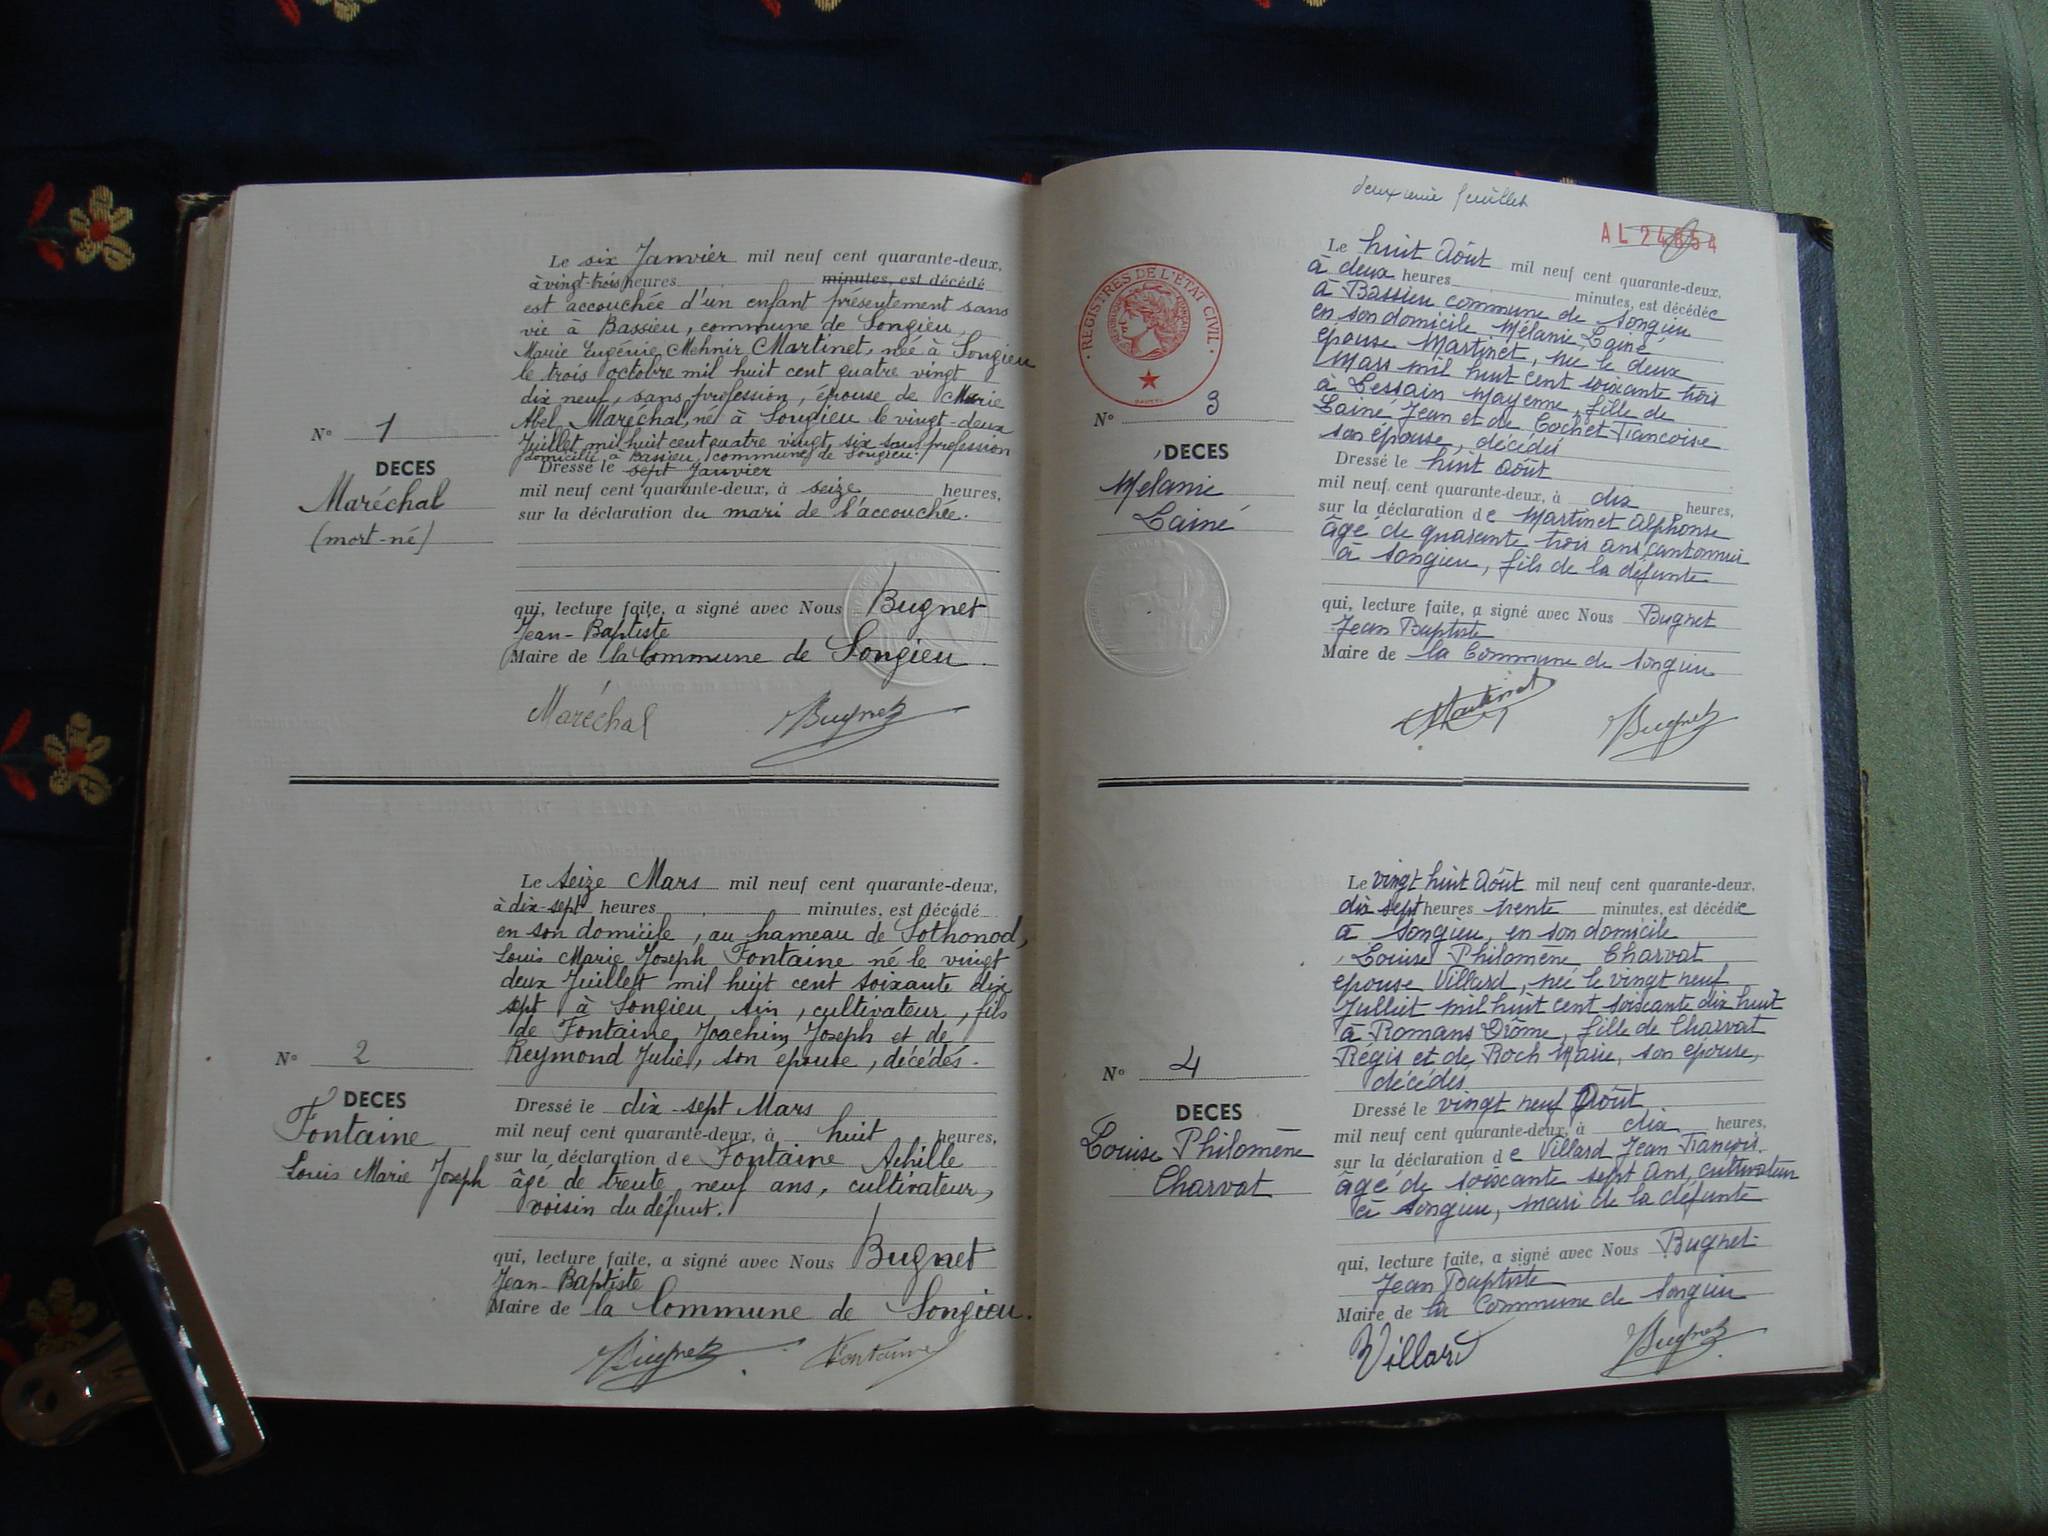 Le six Janvier mil neuf cent quarante-deux,
à vingt-trois heures minutes, est décédé
est accouchée d'un enfant présentement sans
vie à Bassieu, commune de Songieu,
Marie Eugénie Martinet, née à Songieu
le trois octobre mil huit cent quatre vingt
dix neuf, sans profession, épouse de Marie
Abel Maréchal, né à Songieu le vingt-deux
Juillet mil huit cent quatre vingt six sans profession
domicilié à Bassieu, commune de Songieu.
N° 1
DECES
Maréchal
(mort-né)
Dressé le sept Janvier
mil neuf cent quarante-deux, à seize heures,
sur la déclaration du mari de l'accouchée.
qui, lecture faite, a signé avec Nous Bugnet
Jean-Baptiste
Maire de la Commune de Songieu
Maréchal Bugnet
Le seize Mars mil neuf cent quarante-deux,
à dix-sept heures minutes, est décédé
en son domicile, au hameau de Sothonod,
Louis Marie Joseph Fontaine né le vingt
deux Juillet mil huit cent soixante dix
sept à Songieu, Ain, cultivateur, fils
de Fontaine Joachim Joseph et de
Reymond Julie, son épouse, décédés.
N° 2
DECES
Fontaine
Louis Marie Joseph
Dressé le dix-sept Mars
mil neuf cent quarante-deux, à huit heures,
sur la déclaration de Fontaine Achille
âgé de trente neuf ans, cultivateur,
voisin du défunt.
qui, lecture faite, a signé avec Nous Bugnet
Jean-Baptiste
Maire de la Commune de Songieu.
Bugnet Fontaine
deuxième feuillet
AL 24654
REGISTRES DE L'ETAT CIVIL
Le huit Août mil neuf cent quarante-deux,
à deux heures minutes, est décédée
à Bassieu commune de Songieu
en son domicile Mélanie Lainé
épouse Martinet, née le deux
Mars mil huit cent soixante trois
à Lessain Mayenne, fille de
Lainé Jean et de Cochet Francoise
son épouse, décédés
N° 3
DECES
Mélanie
Lainé
Dressé le huit Août
mil neuf cent quarante-deux, à dix heures,
sur la déclaration de Martinet Alphonse
âgé de quarante trois ans, cantonnier
à Songieu, fils de la défunte
qui, lecture faite, a signé avec Nous Bugnet
Jean Baptiste
Maire de la Commune de Songieu
Martinet Bugnet
Le vingt huit Août mil neuf cent quarante-deux,
dix sept heures trente minutes, est décédée
à Songieu, en son domicile
Louise Philomène Charvat
epouse Villard, née le vingt neuf
Julliet mil huit cent soixante dix huit
à Romans Drôme, fille de Charvat
Régis et de Roch Marie, son épouse,
décédés
N° 4
DECES
Louise Philomène
Charvat
Dressé le vingt neuf Août
mil neuf cent quarante-deux, à dix heures,
sur la déclaration de Villard Jean François
âgé de soixante sept ans, cultivateur
à Songieu, mari de la défunte
qui, lecture faite, a signé avec Nous Bugnet
Jean Baptiste
Maire de la Commune de Songieu
Villard Bugnet